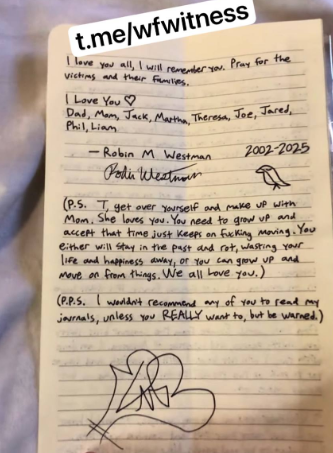 t.me/wfwitness
I love you all, I will remember you. Pray for the
victims and their families.
I Love You ♡
Dad, Mom, Jack, Martha, Theresa, Joe, Jared,
Phil, Liam
— Robin M Westman 2002-2025
Robin Westman
(P.S. T, get over yourself and make up with
Mom. She loves you. You need to grow up and
accept that time just keeps on fucking moving. You
either will stay in the past and rot, wasting your
life and happiness away, or you can grow up and
move on from things. We all love you.)
(P.P.S. I wouldn't recommend any of you to read my
journals, unless you REALLY want to, but be warned.)